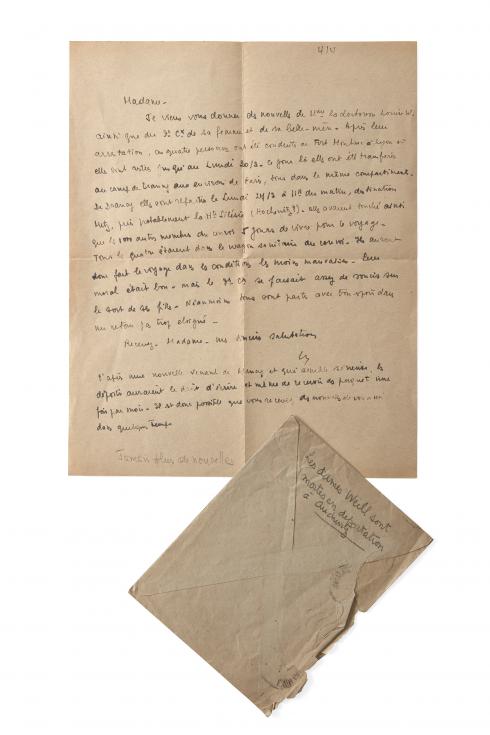 4/V
Madame -
Je viens vous donner des nouvelles de Mme la doctoresse
ainsi que du Dr de sa femme et de sa belle-mère. Après leur
arrestation, ces quatre personnes ont été conduites au Fort Montluc à Lyon où
elles sont restées jusqu'au Lundi 20/3. Ce jour là elles ont été transférées
au camp de Drancy aux environs de Paris, tous dans le même compartiment.
De Drancy elles sont reparties le Lundi 27/3 à 11h du matin, destination
Metz, puis probablement la Hte Silésie (Hochwitz?). elles avaient touché ainsi
que les 1000 autres membres du convoi 5 jours de vivres pour le voyage.
Tous les quatre étaient dans le wagon sanitaire du convoi. Ils auront
donc fait le voyage dans les conditions les moins mauvaises. Leur
moral était bon - mais le Dr se faisait assez de soucis sur
le sort de ses filles. Néanmoins tous sont partis avec bon espoir dans
un retour pas trop éloigné -
Recevez, Madame, mes sincères salutations
D'après une nouvelle venant de Drancy et qui semble sérieuse, les
déportés auraient le droit d'écrire et même de recevoir des paquets une
fois par mois. Il est donc possible que vous receviez des nouvelles
dans quelques temps
Jamais plus de nouvelles
Les dames Weill sont
mortes en déportation
à Auschwitz